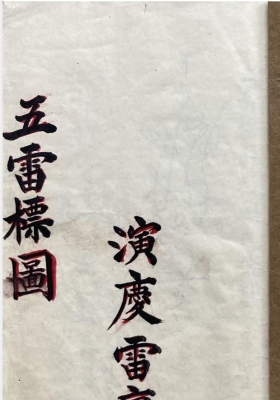 演慶雷
五雷標圖